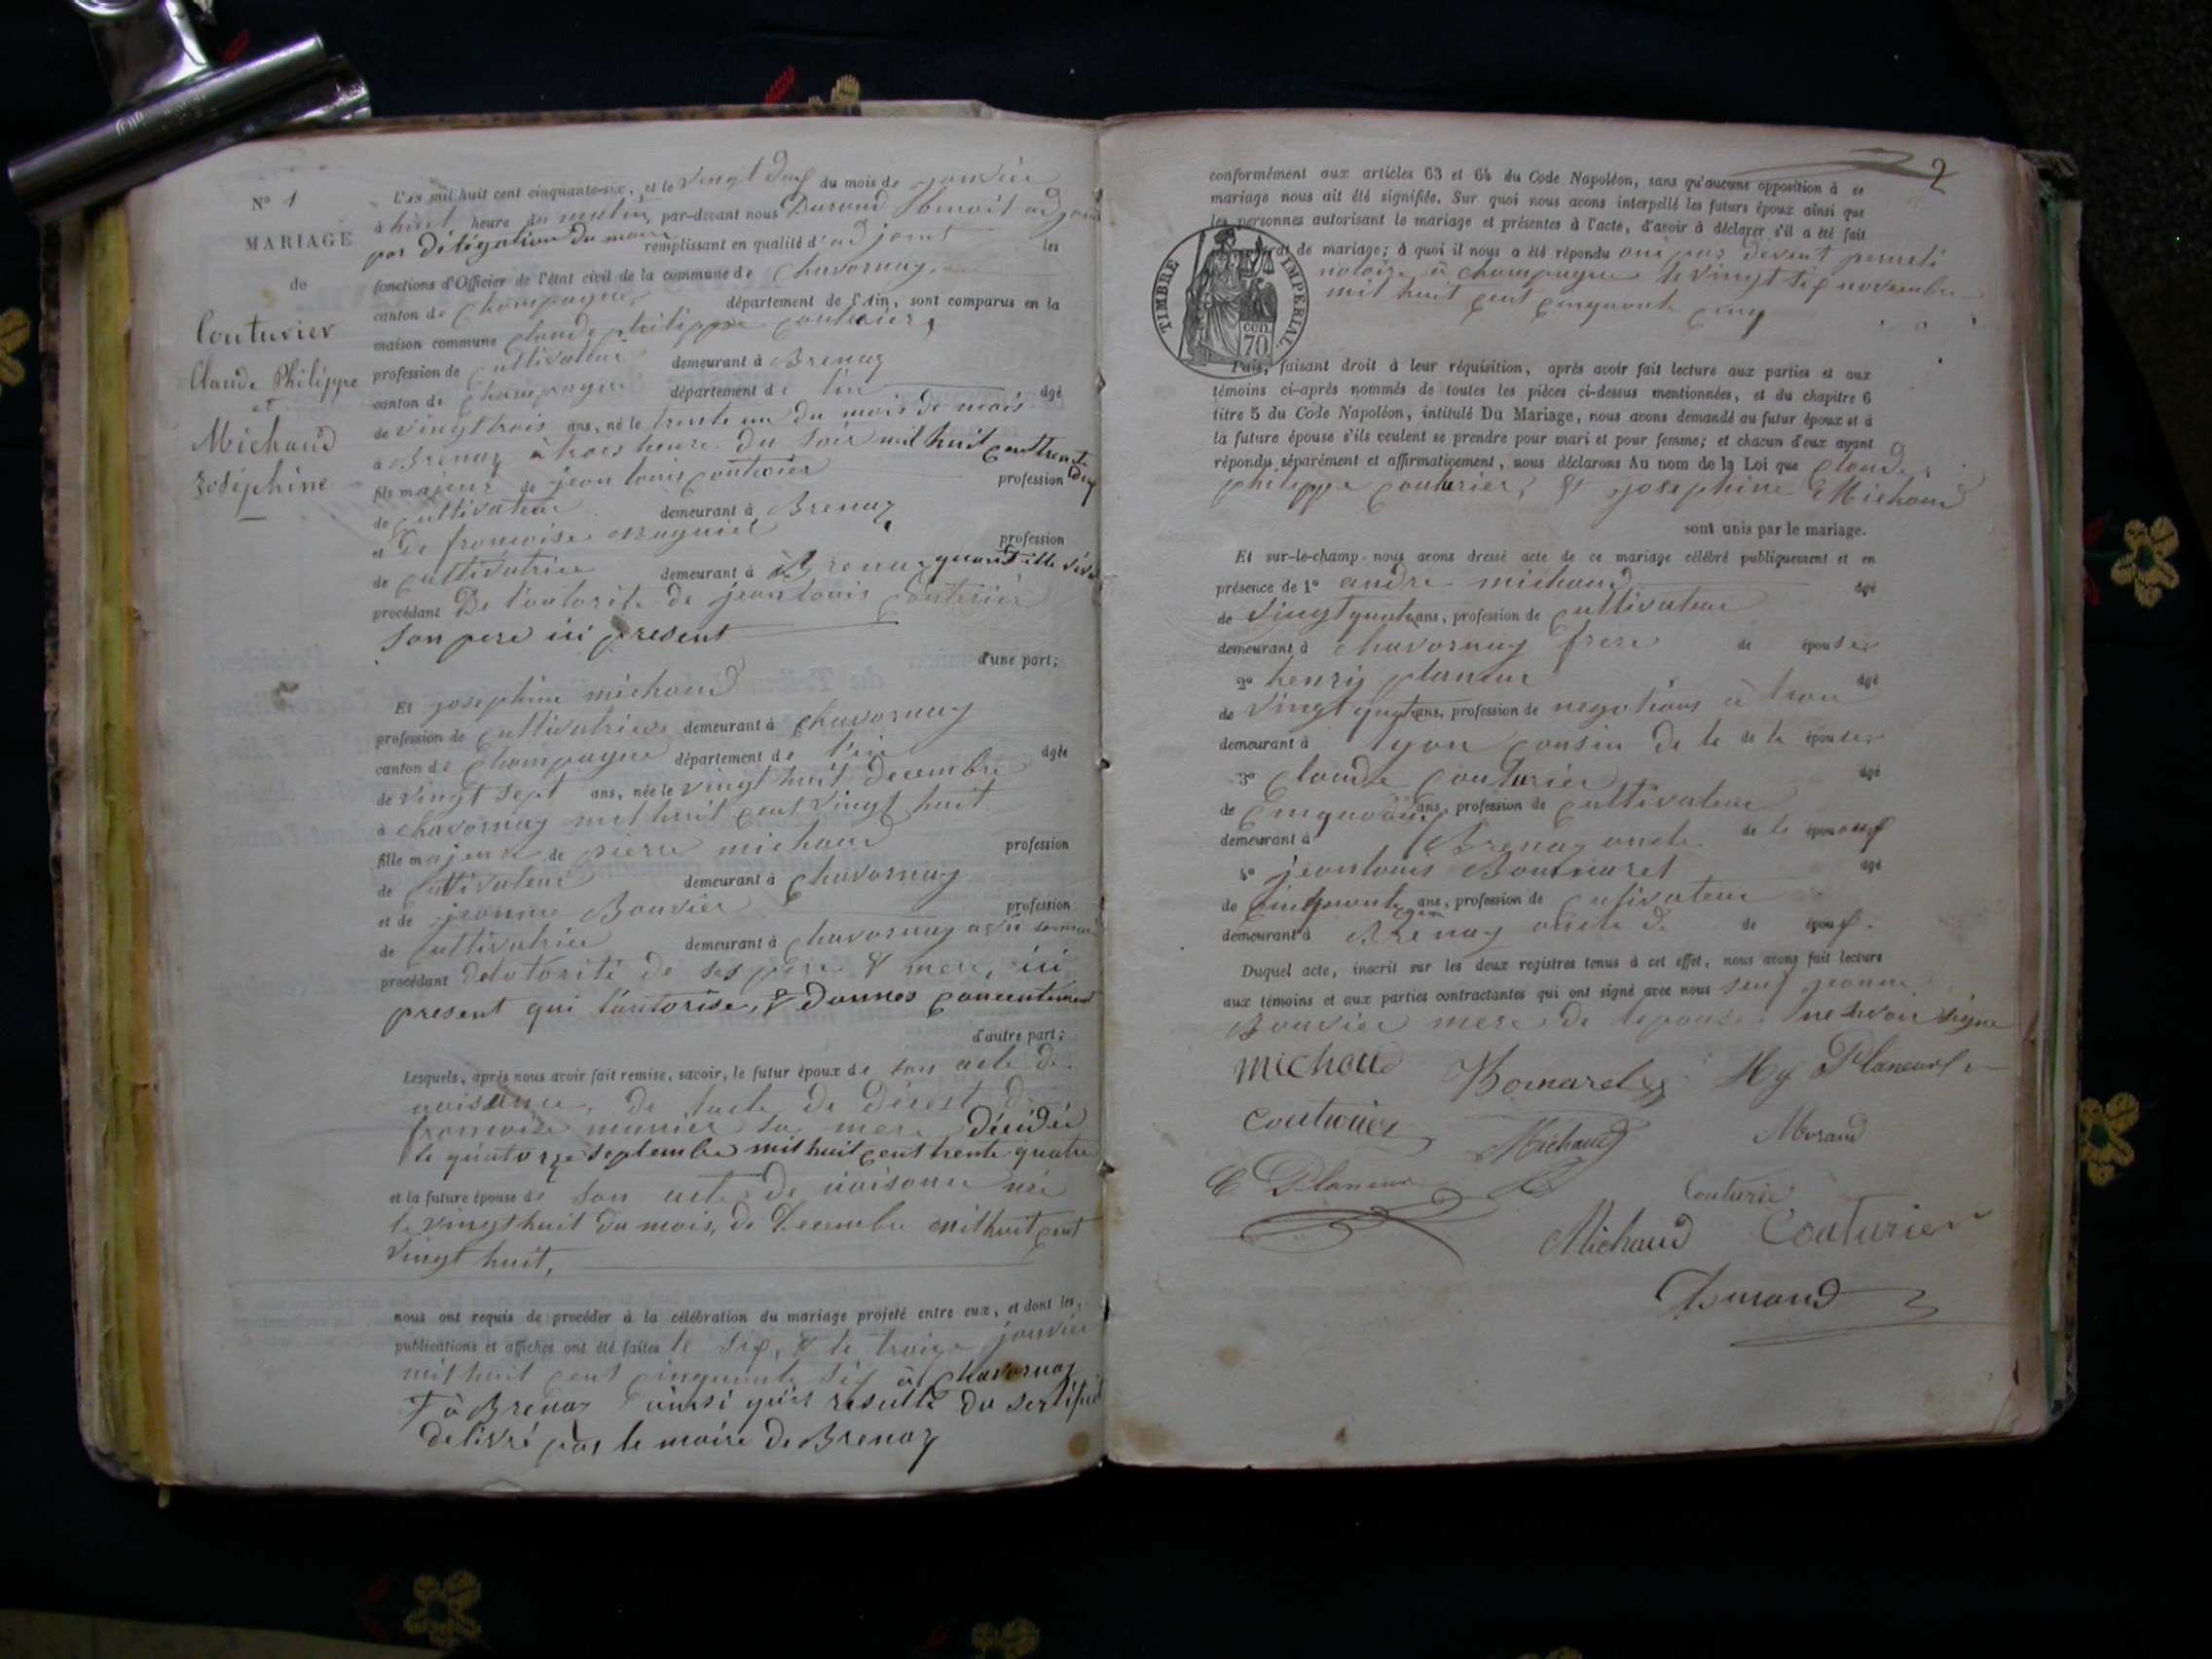 N° 1
MARIAGE
de
Couturier
Claude Philippe
et
Michaud
Joséphine
L'an mil huit cent cinquante-six, et le vingt deux du mois de janvier
à huit heure du matin, par-devant nous Durand Benoit adjoint
par délégation du maire remplissant en qualité d'adjoint les
fonctions d'Officier de l'état civil de la commune de Chavornay
canton de Champagne, département de l'Ain, sont comparus en la
maison commune Claude philippe couturier,
profession de cultivateur demeurant à Brenaz
canton de Champagne département de l'ain âgé
de vingt trois ans, né le trente un du mois de mars
à Brenaz à trois heure du soir mil huit cent trente deux
fils majeur de jean louis couturier profession
de cultivateur demeurant à Brenaz
et de francoise profession
de cultivatrice demeurant à Brenaz quand elle
procédant De l'autorite de jean louis Couturier
son pere ici present
d'une part;
Et josephine michaud
profession de cultivatrice demeurant à chavornay
canton de Champagne département de l'ain âgée
de vingt sept ans, née le vingt huit decembre
à chavornay mil huit cent vingt huit
fille majeure de pierre michaud profession
de Cultivateur demeurant à Chavornay
et de jeanne Bouvier profession
de Cultivatrice demeurant à chavornay
procédant de ses père & mere, ici
present qui l'autorise, & donnes concentement
d'autre part;
Lesquels, après nous avoir fait remise, savoir, le futur époux de son acte de
naisance, de lacte de
francoise munier sa mere décédée
le quatorze septembre mil huit cent trente quatre
et la future épouse de son acte de naisance née
le vingt huit du mois, de Decembre mil huit cent
vingt huit,
nous ont requis de procéder à la célébration du mariage projeté entre eux, et dont les
publications et affiches ont été faites le six, & le treize janvier
mil huit cent cinquante six à chavornay
& à Brenaz ainsi qu'il résulte du sertificat
delivré par le maire de Brenaz
2
conformément aux articles 63 et 64 du Code Napoléon, sans qu'aucune opposition à ce
mariage nous ait été signifiée. Sur quoi nous avons interpellé les futurs époux ainsi que
les personnes autorisant le mariage et présentes à l'acte, d'avoir à déclarer s'il a été fait
contrat de mariage; à quoi il nous a été répondu oui par devant
notaire à champagne le vingt six novembre
mil huit cent cinquante cinq
TIMBRE IMPERIAL
cen.
70
Puis, faisant droit à leur réquisition, après avoir fait lecture aux parties et aux
témoins ci-après nommés de toutes les pièces ci-dessus mentionnées, et du chapitre 6
titre 5 du Code Napoléon, intitulé Du Mariage, nous avons demandé au futur époux et à
la future épouse s'ils veulent se prendre pour mari et pour femme; et chacun d'eux ayant
répondu séparément et affirmativement, nous déclarons Au nom de la Loi que Claude
philippe couturier, & josephine Michaud
sont unis par le mariage.
Et sur-le-champ nous avons dressé acte de ce mariage célébré publiquement et en
présence de 1° andre michaud âgé
de vingt quatre ans, profession de cultivateur
demeurant à chavornay frere de épouse
2° henry planeur âgé
de vingt quatre ans, profession de
demeurant à lyon cousin de la de la épouse
3° Claude Couturier âgé
de ans, profession de cultivateur
demeurant à Brenaz oncle de le époux
4° jean louis âgé
de cinquante ans, profession de cultivateur
demeurant à Brenaz oncle de de époux
Duquel acte, inscrit sur les deux registres tenus à cet effet, nous avons fait lecture
aux témoins et aux parties contractantes qui ont signé avec nous jeanne
Bouvier mere de lepouse ne savoir signe
michaud Hy Planeur
Couturier Michaud Morand
C Planeur
Couturier
Michaud Couturier
Durand